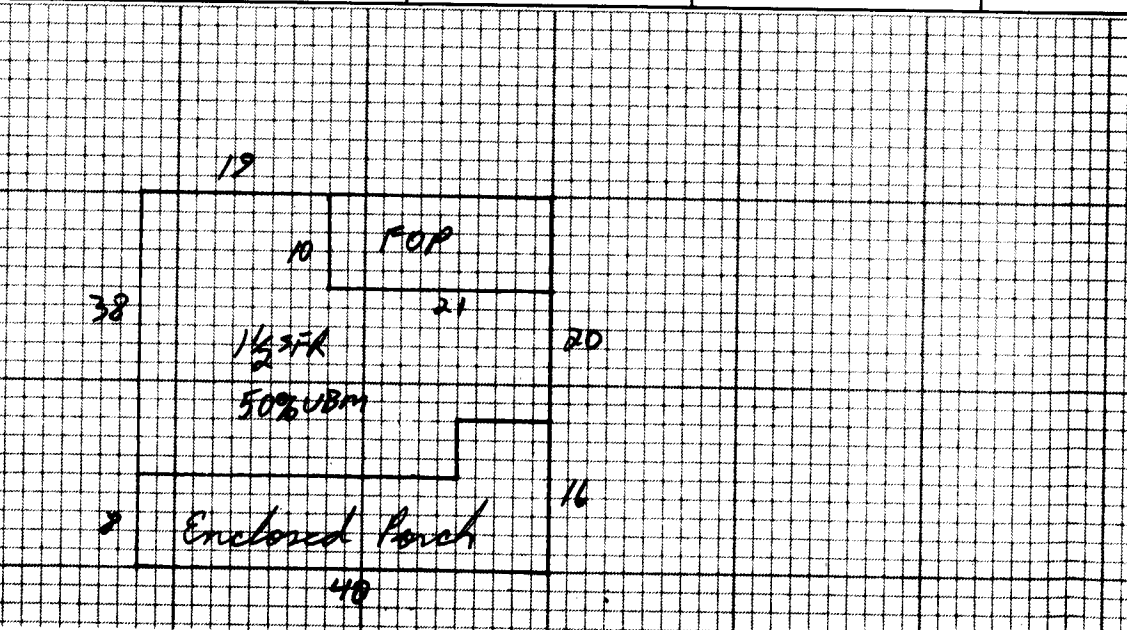 19
10 FOP
38
21
1½ SFR 20
50% UBM
16
8 Enclosed Porch
40